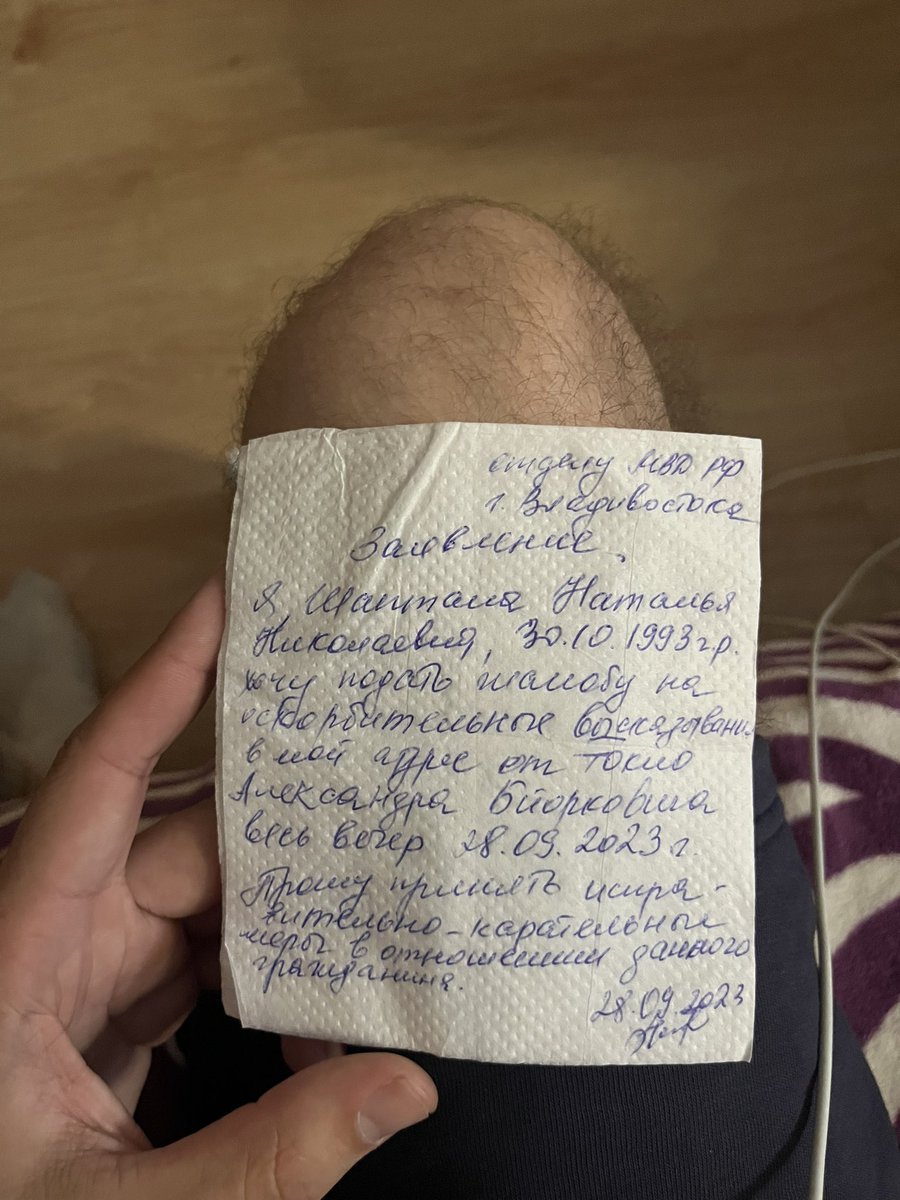 отделу МВД РФ
г. Владивостока
Заявление.
Я, Наталья
Николаевна, 30.10.1993 г.р.
хочу подать жалобу на
оскорбительные высказывания
в мой адрес от Токио
Александра Бьорковича
весь вечер 28.09.2023 г.
Прошу принять исправи-
тельно-карательные
меры в отношении данного
гражданина.
28.09.2023